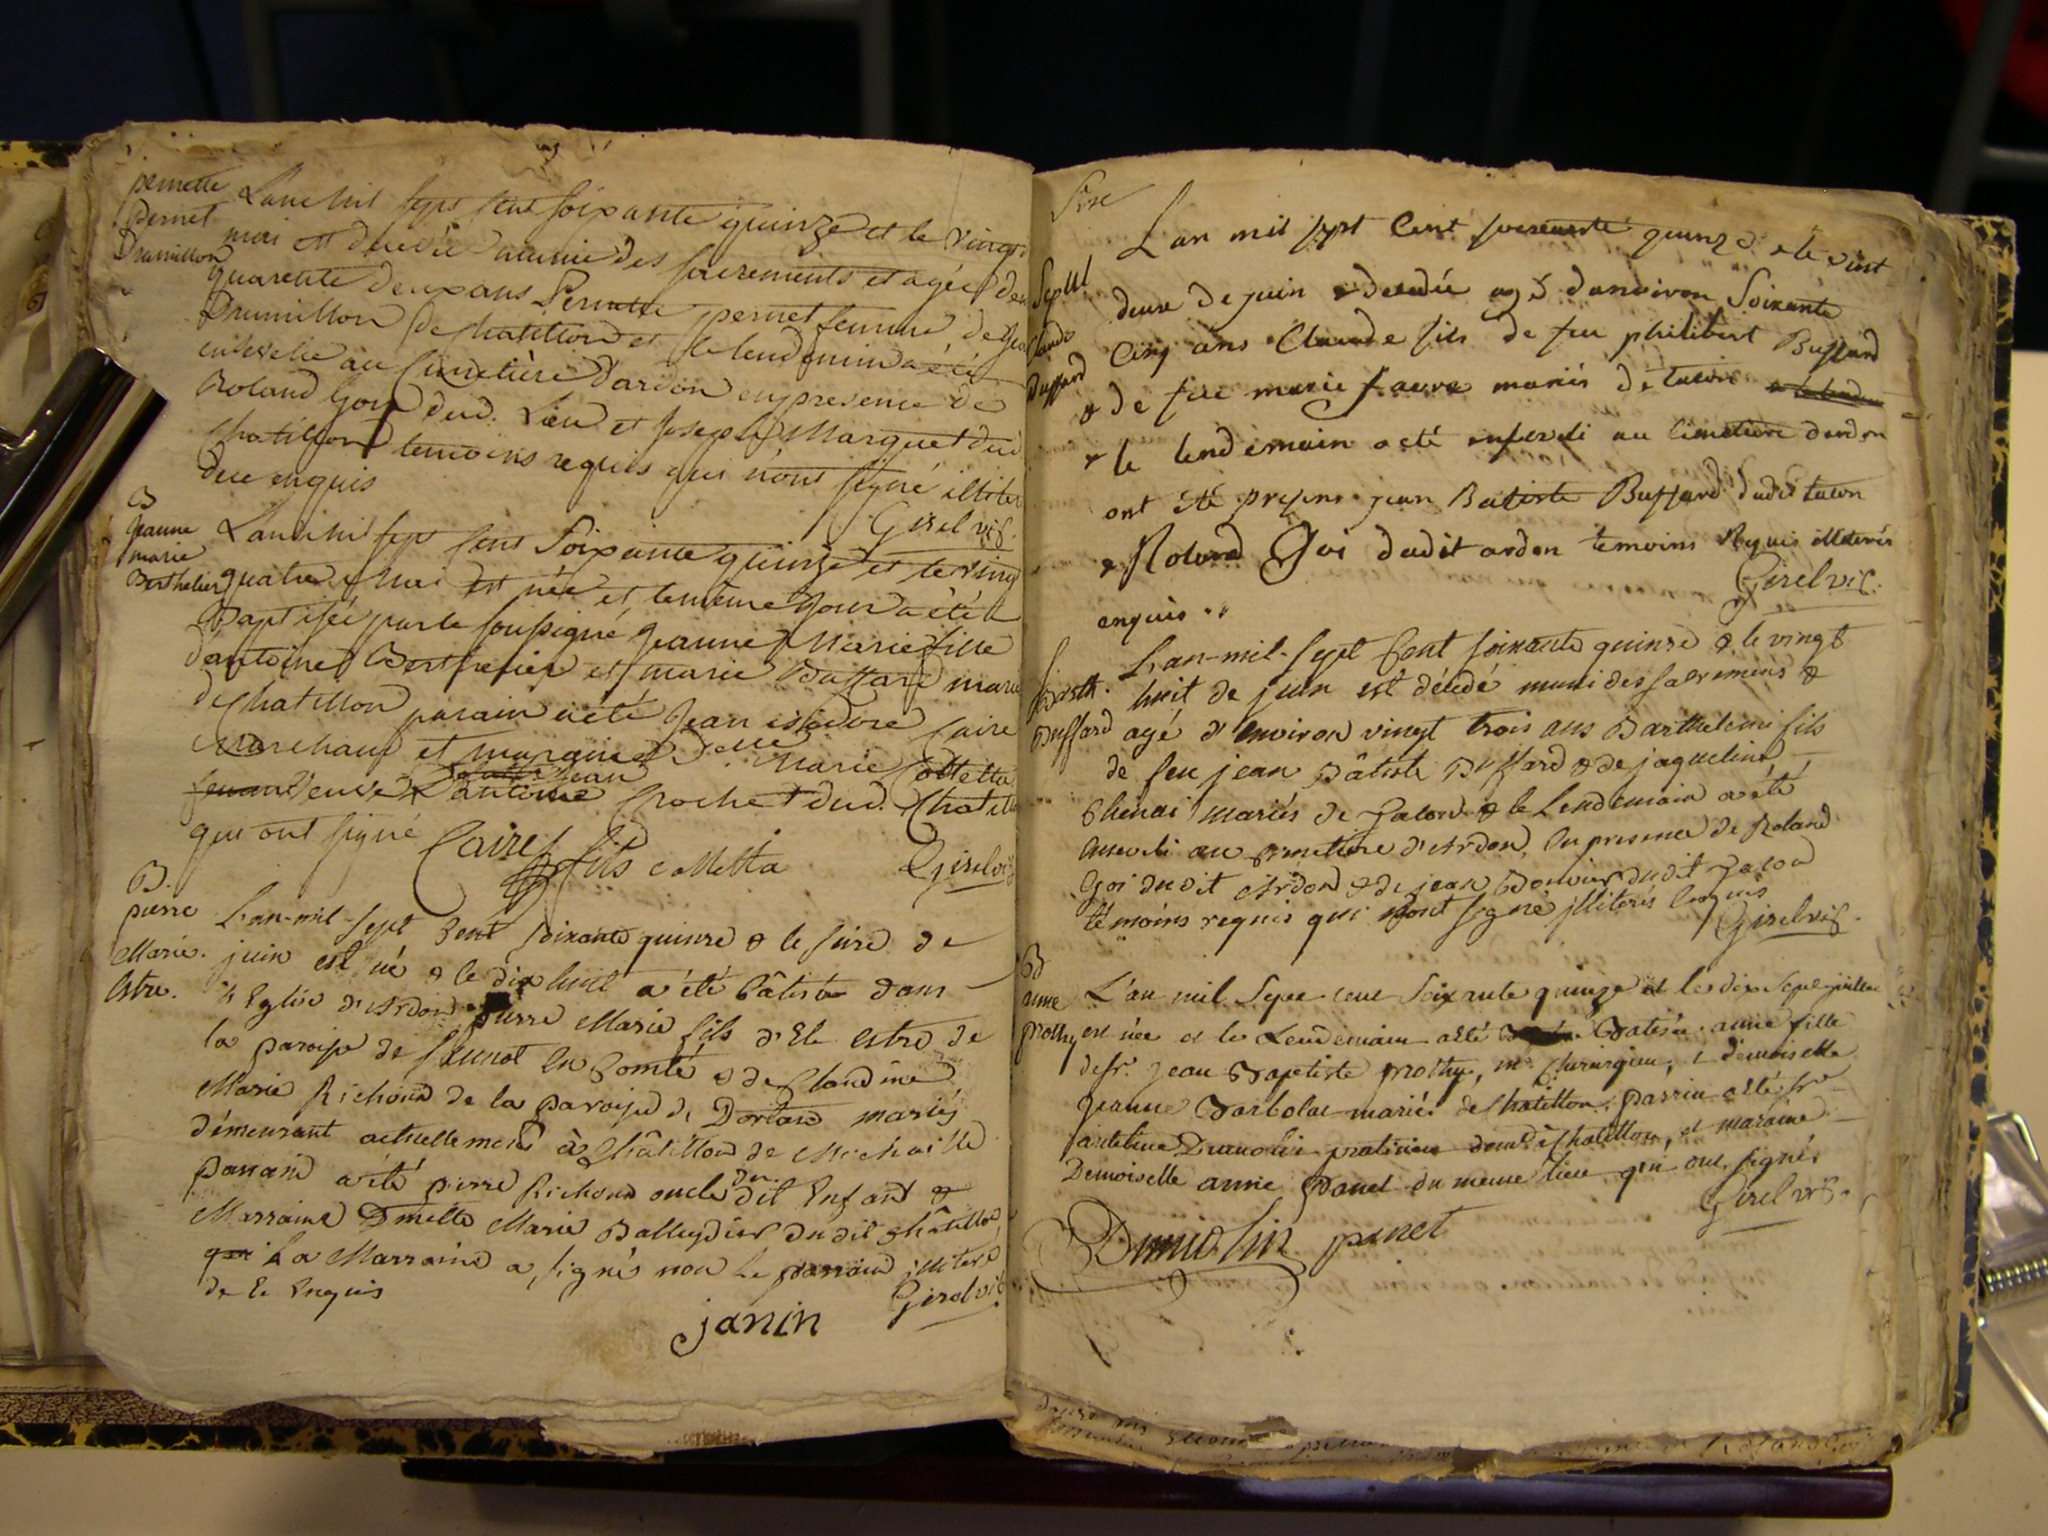 pernette
pernet
Drumillon
L'an mil sept cens soixante quinze et le vingt
mai est decedée munie des sacrements et agée de
quarente deux ans Pernette pernet femme de
Drumillon de chatillon et le lendemain a été
ensevelie au Cimetière d'ardon en presence de
Roland Goy dud. Lieu et Joseph Marquet dud
Chatillon temoins requis qui n'ont signé
de ce enquis
Girel vic.
B
Jeanne
marie
Berthelier
L'an mil sept cens soixante quinze et le vingt
quatre mai est née et le même jour a été
Baptisée par le soussigné Jeanne Marie fille
d'antoine Berthelier et marie Buffard
de Chatillon parain a été Jean isidore Caire
Marchand et maraine Delle Marie Colletta
veuve Jean
Crochet dud. Chatillon
qui ont signé
Caire fils colletta
Girel vic
B.
pierre
Marie.
Estre.
L'an-mil-sept Cent soixante quinze & le seize de
juin est né & le dix huit a été bâtisé dans
l'Eglise d'Ardon pierre Marie fils d' estre de
la paroisse de en Comté & de Claudine
Marie Richond de la paroisse de Dortan mariés
démeurant actuellement à Châtillon de Michaille
parrain a été pierre Richond oncle du dit Enfant &
Marraine Dmelle Marie Balleydier du dit châtillon
La Marraine a signé non le parrain
de Ce Enquis
janin
Girel vic
Sepult
Claude
Buffard
L'an mil sept Cent soixante quinze & le vint
deux de juin & decedé agé d'anviron Soixante
Cinq ans Claude fils de feu philibert Buffard
& de feue marie favre mariés de tacon
& le lendemain a été enseveli au Cimetiere dardon
ont été presens jean Batiste Buffard dudit tacon
& Roland Goi dudit ardon temoins Requis
enquis
Girel vic.
Barth.
Buffard
L'an-mil-sept Cent soixante quinze & le vingt
huit de juin est décédé muni des sacremens &
agé d'environ vingt trois ans Barthelemi fils
de feu jean Bâtiste Buffard & de jaqueline
mariés de Tacon & le Lendemain a été
enseveli au cimetiere d'Ardon, En presence de Roland
Goi du dit Ardon & de jean Bonvier du dit Tacon
témoins requis qui n'ont signé jlliterés Enquis
Girel vic.
B
anne
prothy
L'an mil Sept cent Soixante quinze et le dix sept juillet
est née et le Lendemain a été Batisée anne fille
de sr. Jean Baptiste prothy, me chirurgien, et demoiselle
Jeanne mariés de Chatillon. parrin a été sr
anthelme Dumolin praticien demt à Chatillon, et maraine
Demoiselle anne panet du meme lieu qui ont signés
Girel vic.
Dumolin panet